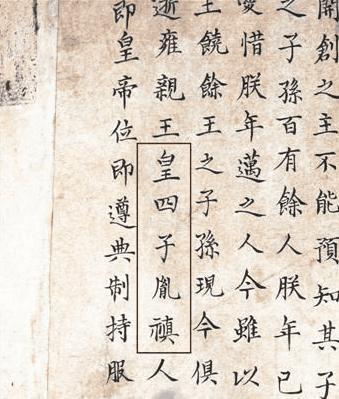 開創之主不能預知其子
之子孫百有餘人朕年已
愛惜朕年邁之人今雖以
王饒餘王之子孫現今俱
逝雍親王皇四子胤禛人
即皇帝位即遵典制持服